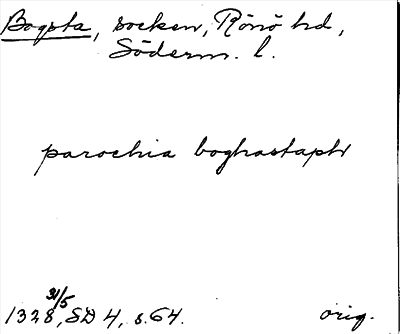 Bogsta, socken, Rönö hd,
Söderm. l.
parochia boghastaph
31/5
1328, SD 4, s. 64.
orig.